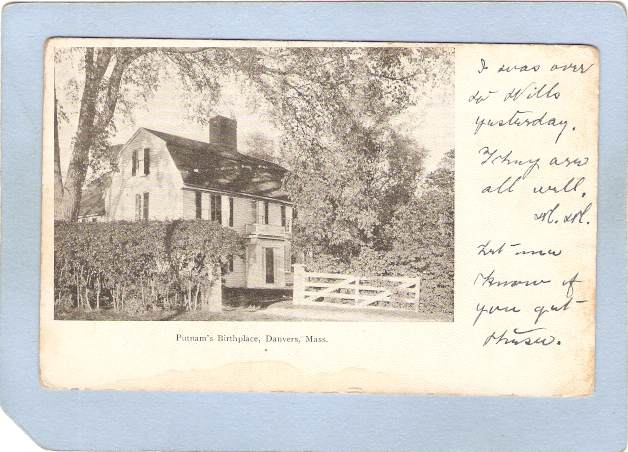 I was over
to Wills
yesterday.
They are
all well,
H. H.
Let me
know if
you get
these.
Putnam's Birthplace, Danvers, Mass.